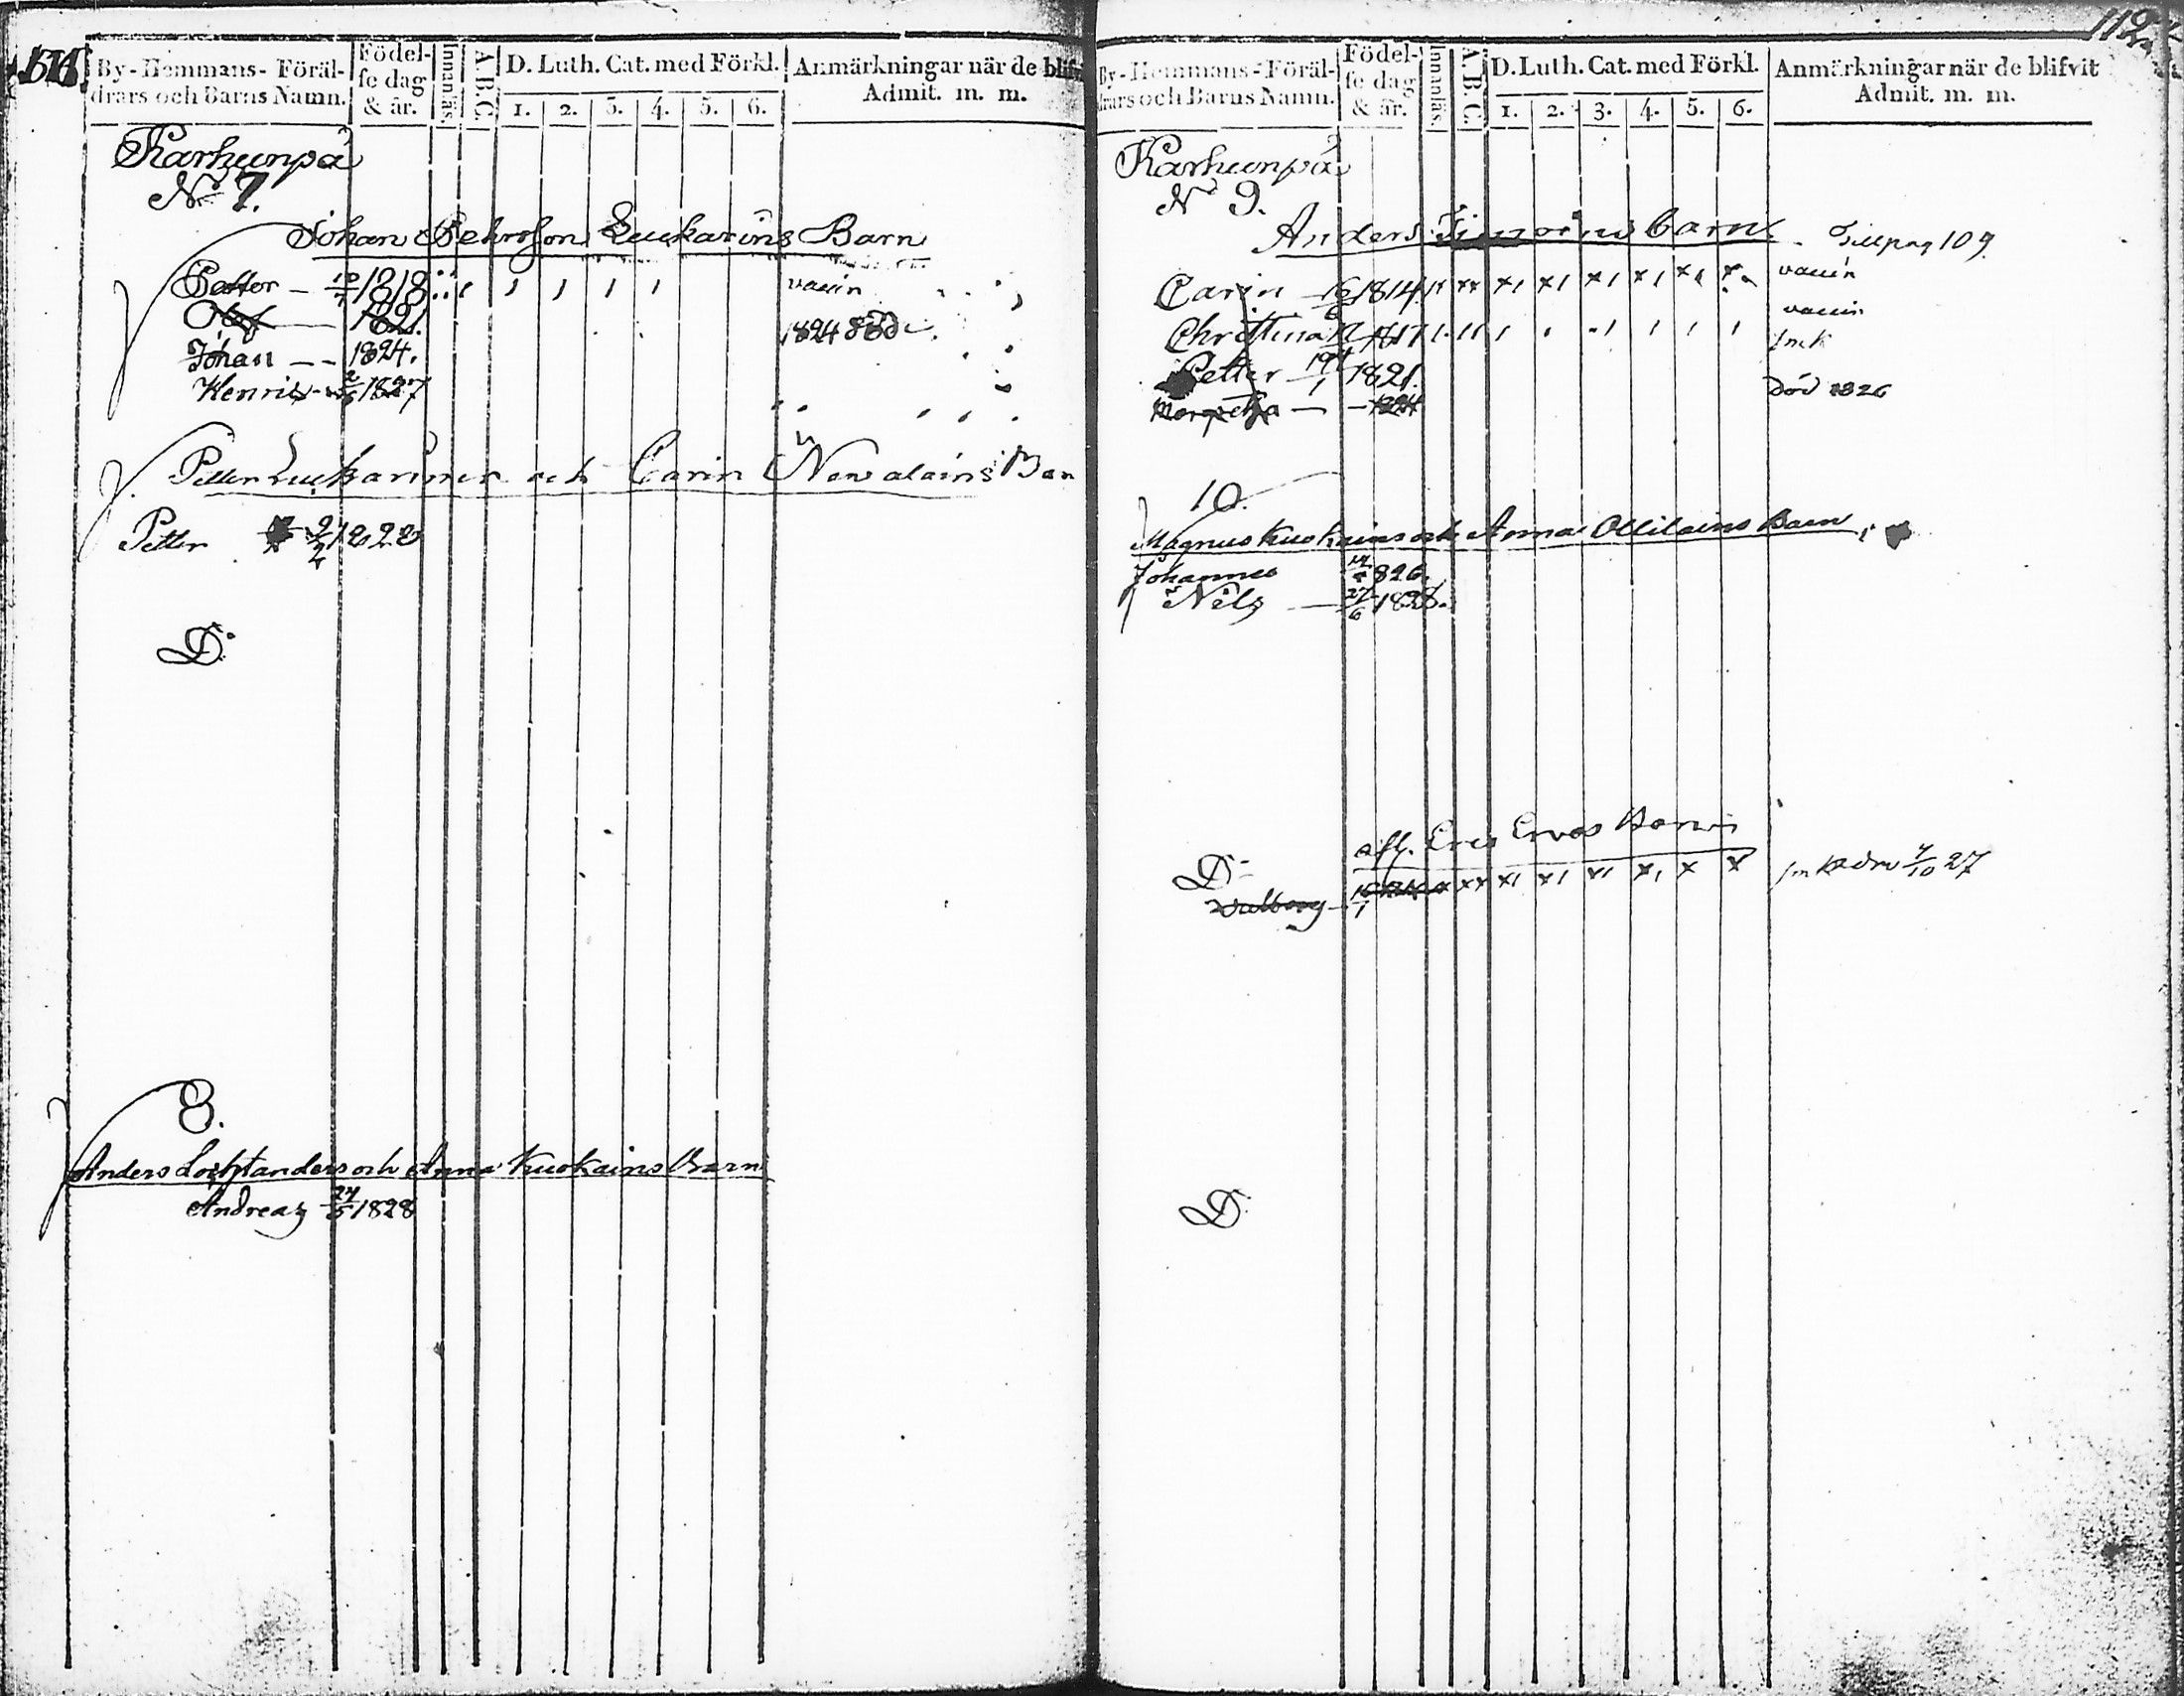 By-Hemmans-Föräl-
drars och Barns Namn.
Födel-
se dag
& år.
Innanläs.
A.B.C.
D. Luth. Cat. med Förkl.
1. 2. 3. 4. 5. 6.
Anmärkningar när de blifv
Admit. m. m.
Karhunpä
No 7.
Johan Pehrsson Luukarins Barn
Petter 1818 vaccin
Olof 1821. 1824 död
Johan 1824.
Henric 1827
Petter Luukarinen och Carin Nevalains Barn
Petter 1828
Do
8.
Anders och Anna Kuokains Barn
Andreas 1828
112
By-Hemmans-Föräl-
drars och Barns Namn.
Födel-
se dag
& år.
Innanläs.
A.B.C.
D. Luth. Cat. med Förkl.
1. 2. 3. 4. 5. 6.
Anmärkningar när de blifvit
Admit. m. m.
Karhunpä
N 9.
Anders barn Till pag 109
Carin 1814 vaccin
Christina 1817 vaccin
Petter 19/1 1821.
Margretha 1824 död 1826
10.
Magnus Kuokains och Anna Ollilains Barn
Johannes 826
Nils 27/6 1828.
afl. Eric Ervas Barn
Do
Walborg 7/10 27
Do